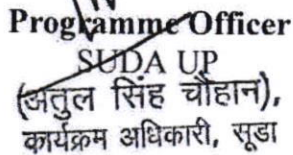 Programme Officer
SUDA UP
(अतुल सिंह चौहान),
कार्यक्रम अधिकारी, सूडा